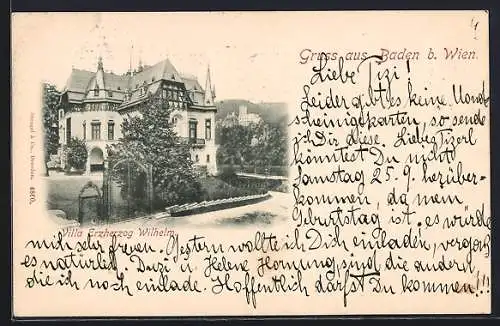 4
Gruss aus Baden b. Wien.
Stengel & Co., Dresden. 4805.
Liebe Tizi!
Leider gibt es keine Mond-
scheinigekarten, so sende
ich Dir diese. Liebe Tizerl
könntest Du nicht
Samstag 25. 9. herüber-
kommen, da mein
Geburtstag ist, es würde
Villa Erzherzog Wilhelm
mich sehr freuen. Gestern wollte ich Dich einladen, vergaß
es natürlich. Duzi u. Helene Hornung sind die andern,
die ich noch einlade. Hoffentlich darfst Du kommen!!!